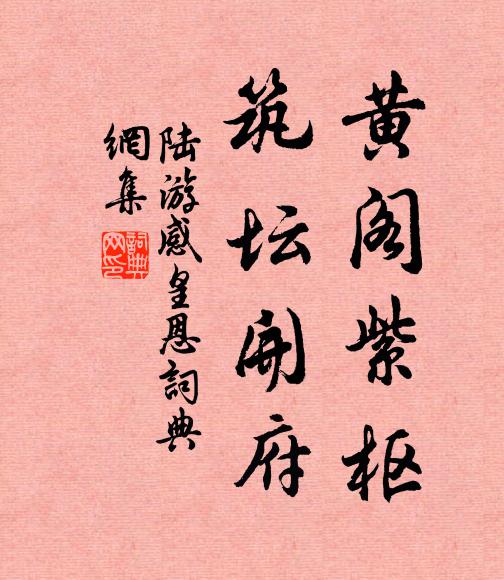 黄阁紫枢
筑坛开府
陆游感皇恩詞典
網集
詞典
网印